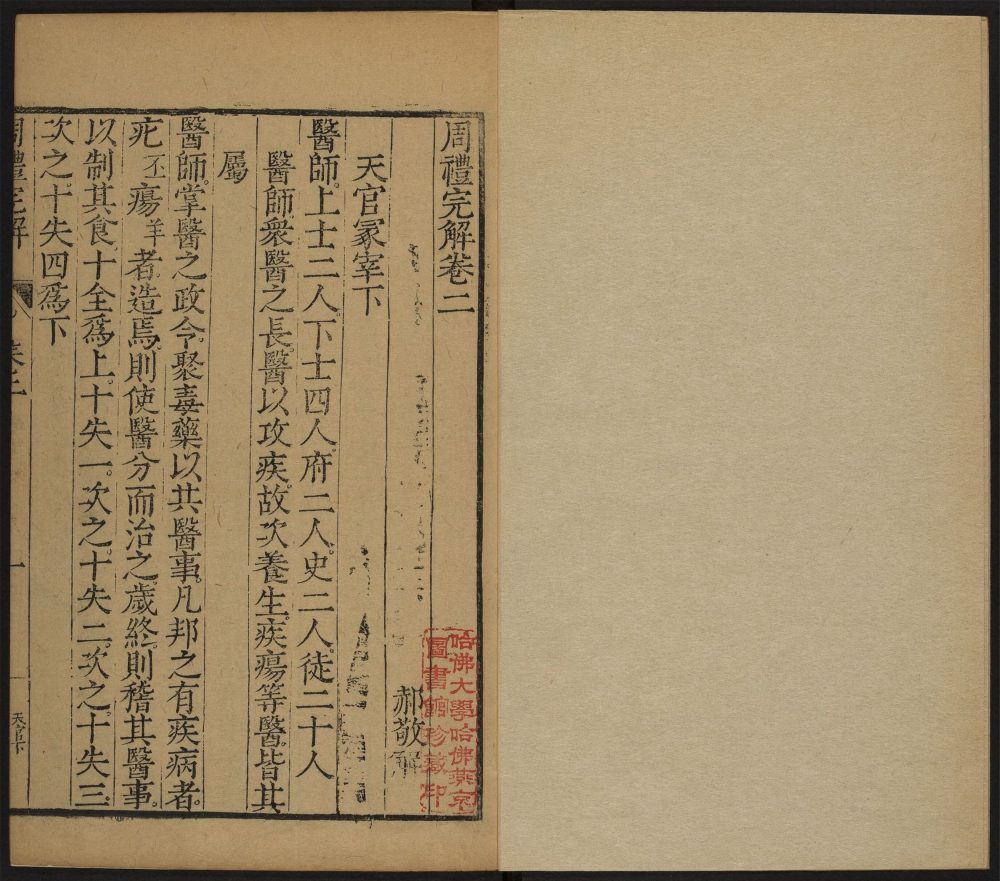 周禮完解卷二
郝敬解
天官冢宰下
醫師。上士二人。下士四人。府二人。史二人。徒二十人
醫師。衆醫之長。醫以攻疾。故次養生。疾瘍等醫。皆其
屬
醫師。掌醫之政令。聚毒藥以共醫事。凡邦之有疾病者。
疕丕瘍羊者造焉。則使醫分而治之。歲終。則稽其醫事。
以制其食。十全爲上。十失一。次之。十失二。次之。十失三。
次之。十失四爲下
周禮完解
卷二
一
天官下
哈佛大學哈佛燕京
圖書館珍藏印